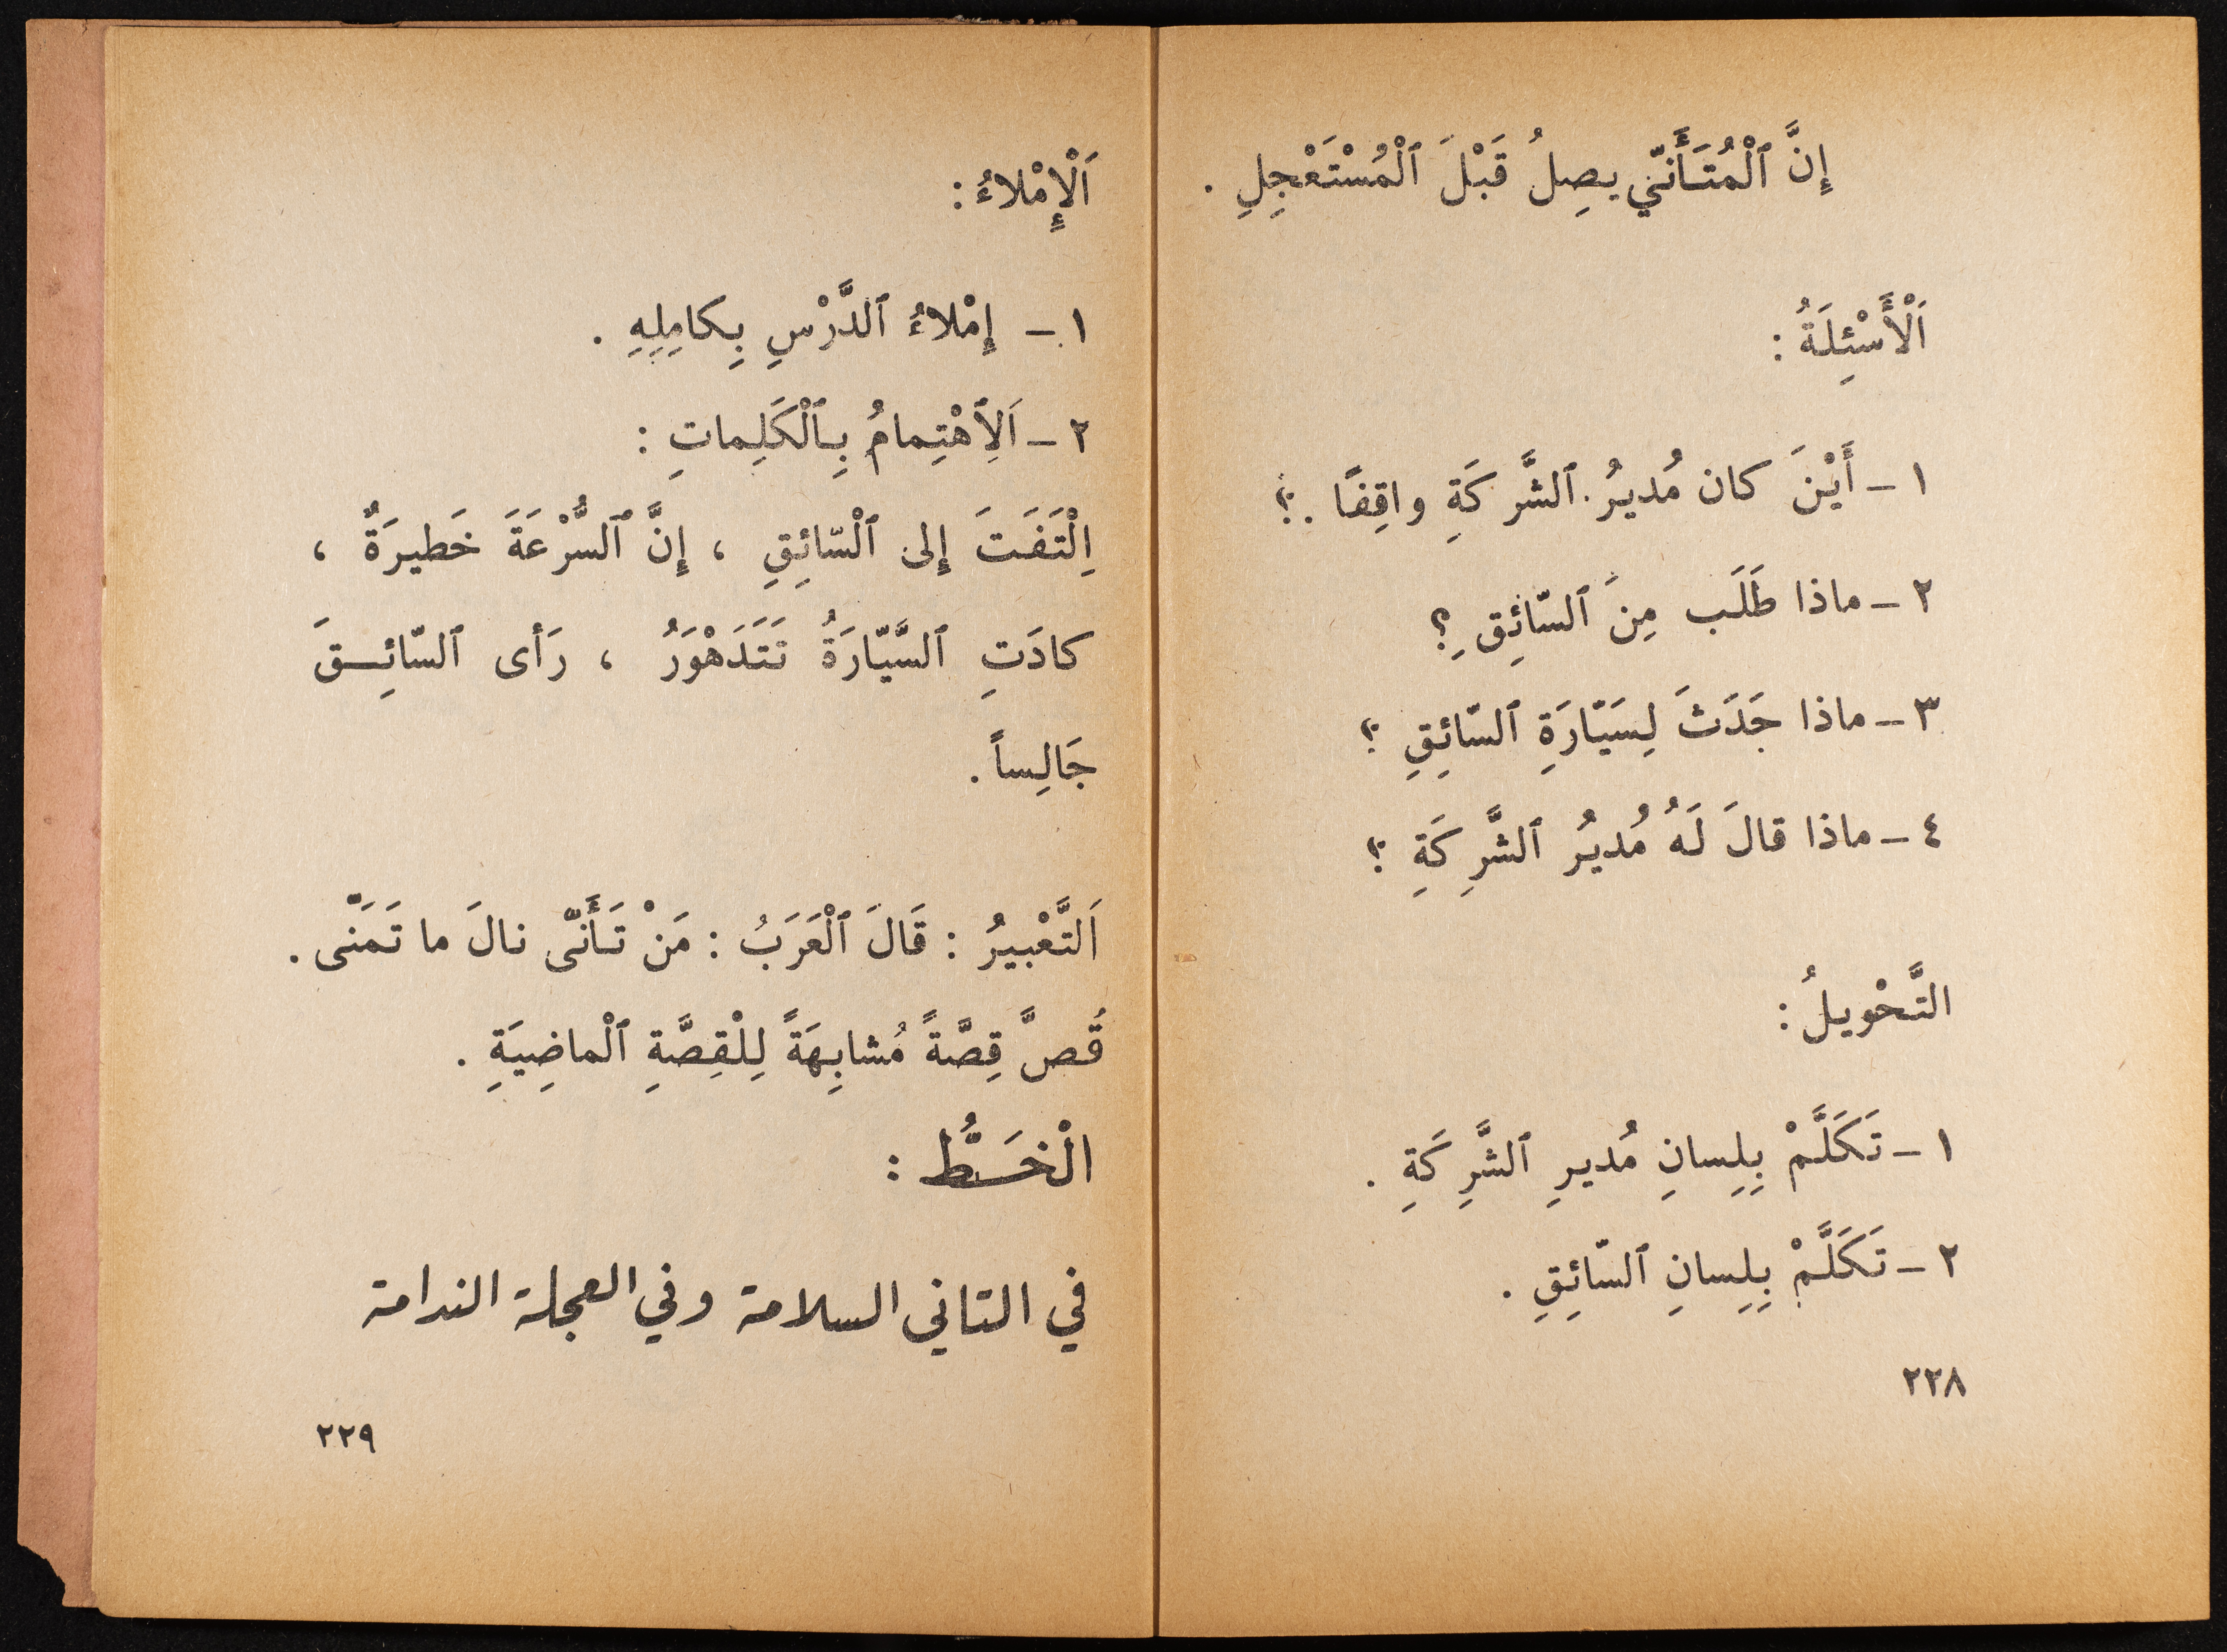 إِنَّ ٱلْمُتَأَنّي يصِلُ قَبْلَ ٱلْمُسْتَعْجِلِ .
اَلْأَسْئِلَةُ :
١ - أَيْنَ كان مُديرُ ٱلشَّركَةِ واقِفًا ؟
٢ - ماذا طَلَب مِنَ ٱلسّائِقِ ؟
٣ - ماذا جَدَثَ لِسَيّارَةِ ٱلسّائِقِ ؟
٤ - ماذا قالَ لَهُ مُديُر ٱلشَّرِكَةِ ؟
التَّحْويلُ :
١ - تَكَلَّمْ بِلِسانِ مُديرِ ٱلشَّرِكَةِ .
٢ - تَكَلَّمْ بِلِسانِ ٱلسّائِقِ .
٢٢٨
اَلْإِمْلاءُ :
١ - إِمْلاءُ ٱلدَّرْسِ بِكامِلِهِ .
٢ - اَلِٱهْتِمامُ بِٱلْكَلِماتِ :
اِلْتَفَتَ إِلى ٱلْسّائِقِ ، إِنَّ ٱلسُّرْعَةَ خَطيرَةٌ ،
كادَتِ ٱلسَّيّارَةُ تَتَدَهْوَرُ ، رَأى ٱلسّائِقَ
جَالِساً .
اَلتَّعْبيرُ : قَالَ ٱلْعَرَبُ : مَنْ تَأَنّى نالَ ما تَمَنّى .
قُصَّ قِصَّةً مُشابِهَةً لِلْقِصَّةِ ٱلْماضِيَةِ .
الْخَطُّ :
في التاني السلامة وفي العجلة الندامة
٢٢٩